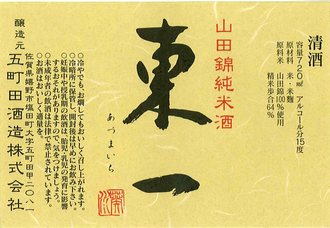 清酒
容量720ml アルコール分15度
原材料 米・米麹
原料米 山田錦100%使用
精米歩合64%
山田錦純米酒
東一
あづまいち
○冷やでも、お燗してもおいしく召し上がれます。
○冷暗所に保管し、開封後は早めにお飲み下さい。
○妊娠中や授乳期の飲酒は、胎児・乳児の発育に影響
するおそれがありますので、気をつけましょう。
○未成年者の飲酒は法律で禁止されています。
○お酒はおいしく適量を。
佐賀県嬉野市塩田町大字五町田甲二〇八一
醸造元 五町田酒造株式会社